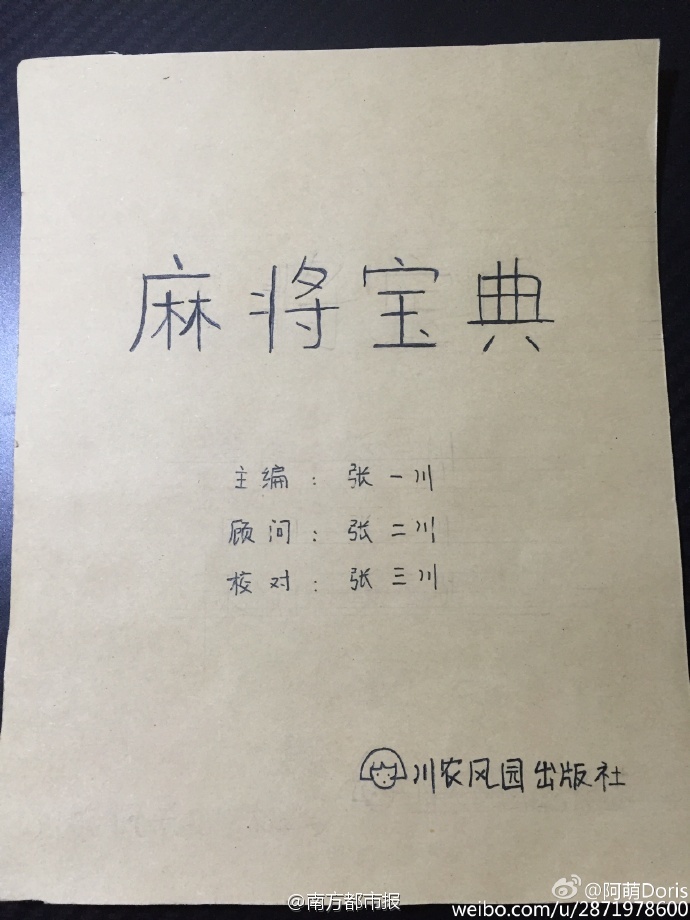 麻将宝典
主编：张一川
顾问：张二川
校对：张三川
川农风园出版社
@南方都市报
@阿萌Doris
weibo.com/u/2871978600